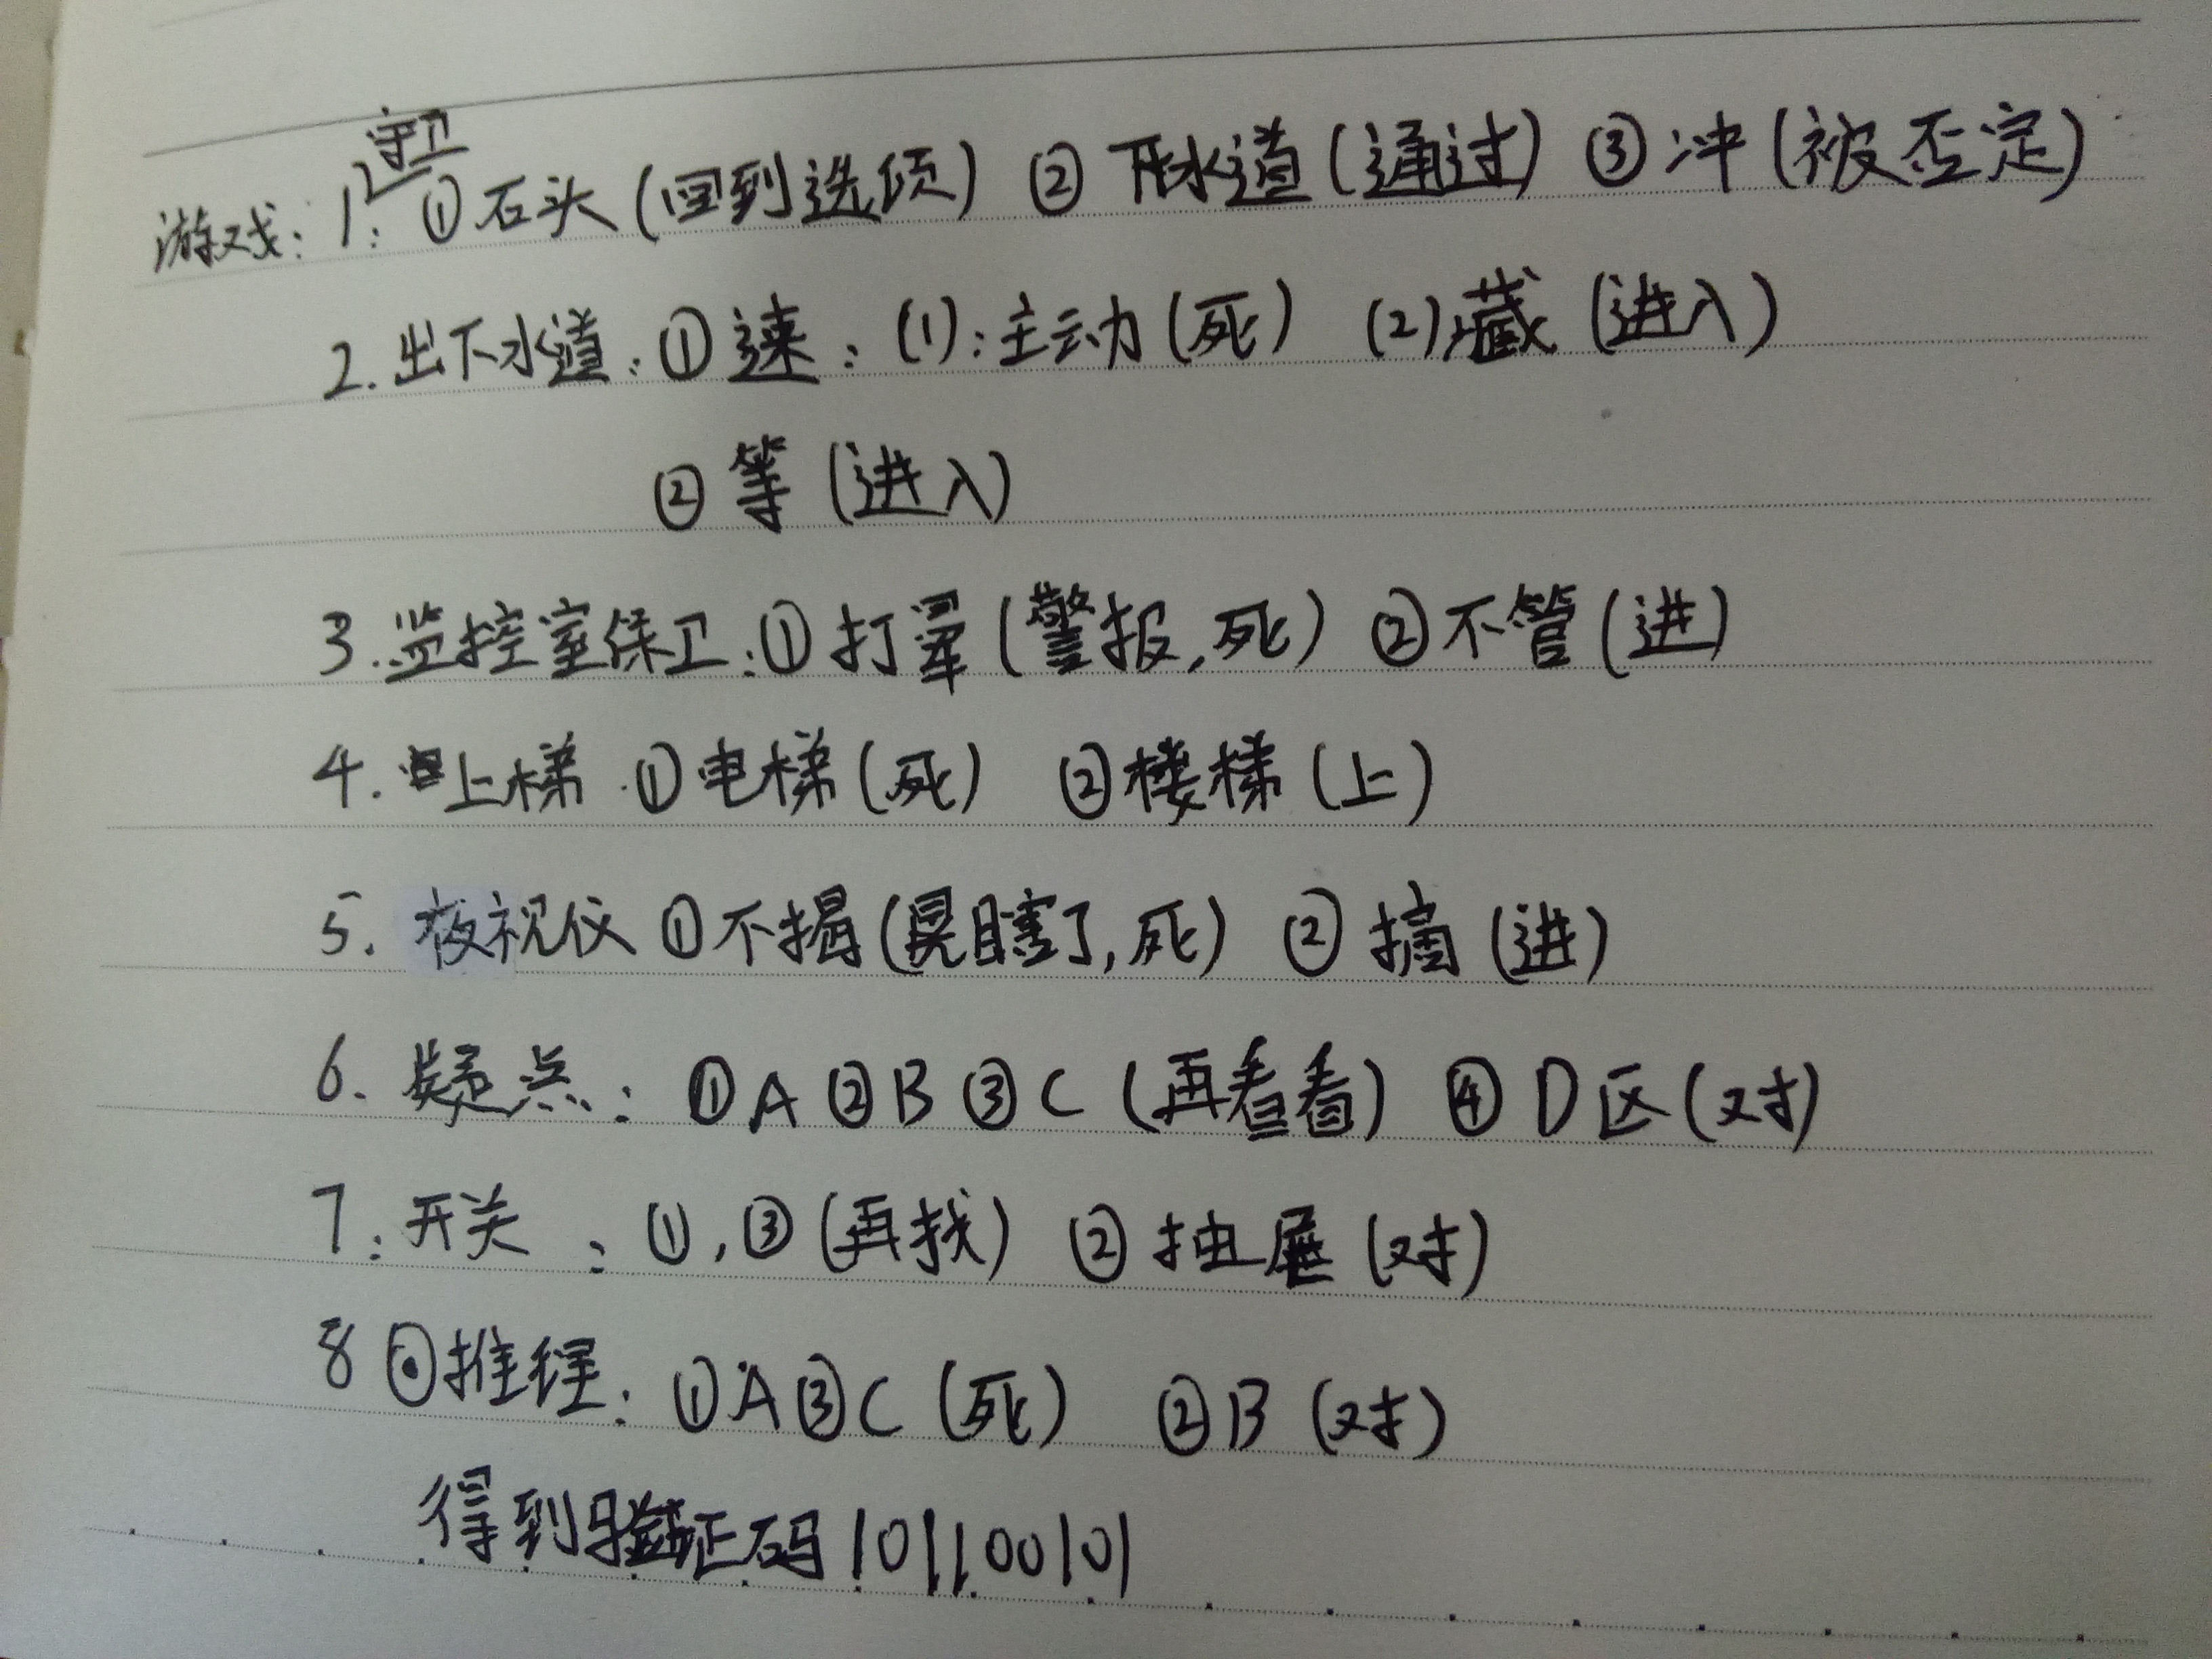 守卫
游戏: 1: ①石头(回到选项) ②下水道(通过) ③冲(被否定)
2.出下水道: ①速: (1):主动(死) (2)藏(进入)
②等(进入)
3.监控室保卫:①打晕(警报,死) ②不管(进)
4.上梯 ①电梯(死) ②楼梯(上)
5.夜视仪 ①不摘(晃瞎了,死) ②摘(进)
6.疑点: ①A②B③C(再看看) ④D区(对)
7:开关: ①,③(再找) ②抽屉(对)
8推理: ①A③C(死) ②B(对)
得到验证码101100101